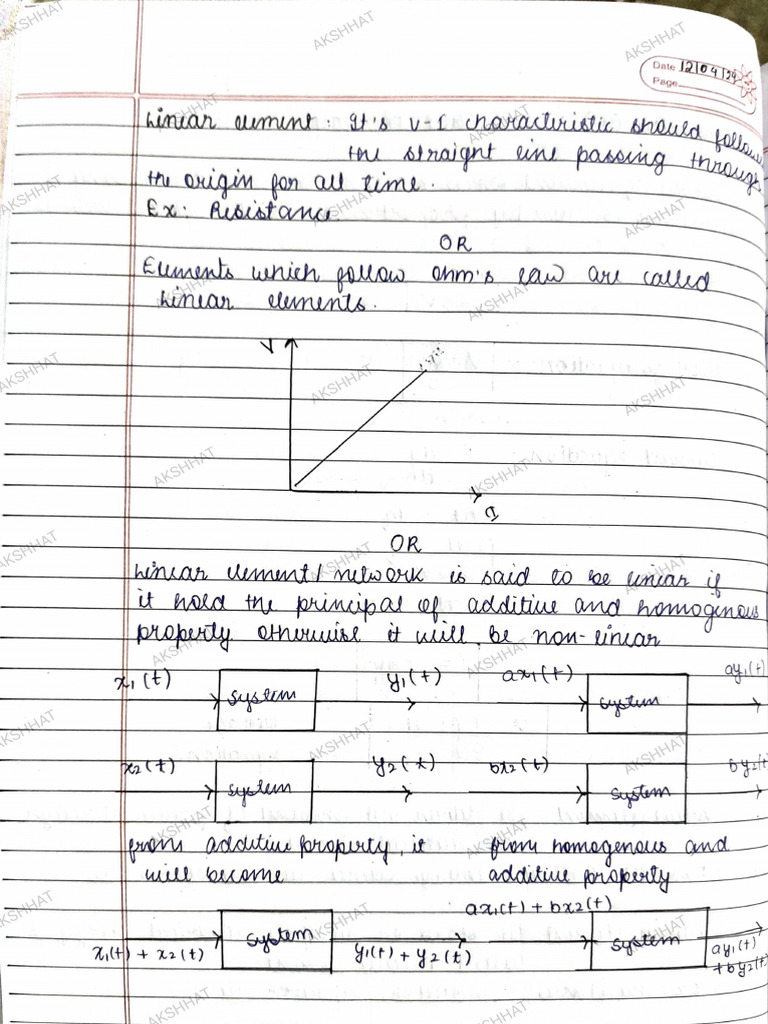 Date 12/04/24
Page
Linear element: It's V-I characteristic should follow
the straight line passing through
the origin for all time.
Ex: Resistance.
OR
Elements which follow ohm's law are called
Linear elements.
V
I
OR
Linear element/network is said to be linear if
it hold the principal of additive and homogenous
property otherwise it will be non-linear
x1(t) system y1(t) ax1(t) system ay1(t)
x2(t) system y2(t) bx2(t) system by2(t)
from additive property, it
will become
from homogenous and
additive property
x1(t) + x2(t) system y1(t) + y2(t)
ax1(t) + bx2(t) system ay1(t)
+ by2(t)
AKSHHAT